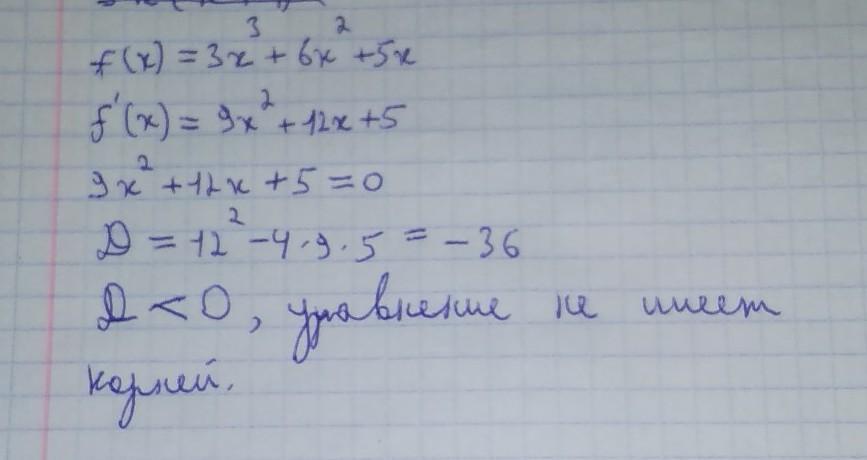 f(x) = 3x³ + 6x² + 5x
f'(x) = 9x² + 12x + 5
9x² + 12x + 5 = 0
D = 12² - 4 · 9 · 5 = -36
D < 0, уравнение не имеет
корней.